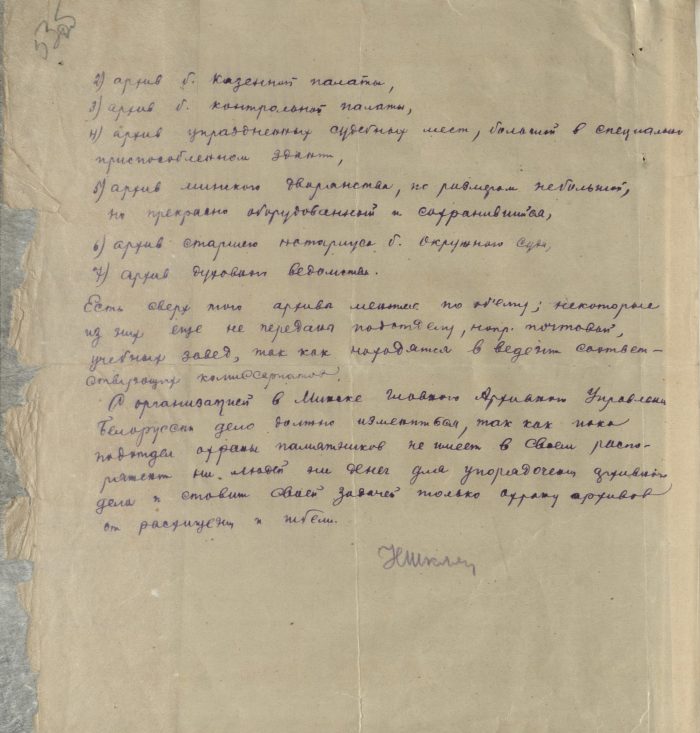 535
2) архив б. казенной палаты,
3) архив б. контрольной палаты,
4) архив упраздненных судебных мест, большой в специально
приспособленном здании,
5) архив минского дворянства, по размерам небольшой,
но прекрасно оборудованной и сохранившийся,
6) архив старшего нотариуса б. окружного суда,
7) архив духовного ведомства.
Есть сверх того архивы меньшие по об'ему; некоторые
из них еще не переданы подотделу, напр. почтовой,
учебных завед, так как находятся в ведении соответ-
ствующих комиссариатов.
С организацией в Минске Главного Архивного Управления
Белоруссии дело должно измениться, так как пока
подотдел охраны памятников не имеет в своем распо-
ряжении ни людей ни денег для упорядочения архивного
дела и ставит своей задачей только охрану архивов
от расхищения и гибели.